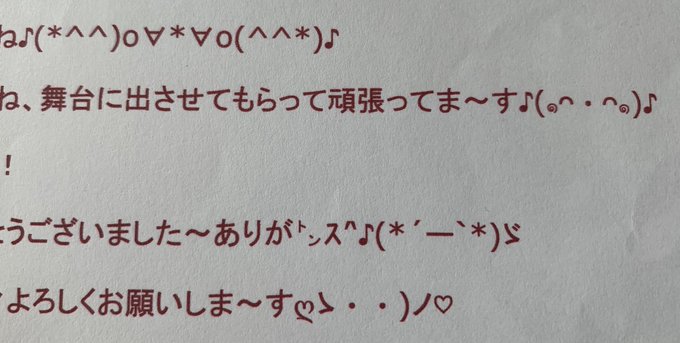 ね♪(*^^)o∀*∀o(^^*)♪
ね、舞台に出させてもらって頑張ってま～す♪(๑ᴖ・ᴖ๑)♪
！
うございました～ありが㌧ス^♪(*´ー`*)ゞ
よろしくお願いしま～すღゝ・・)ノ♡